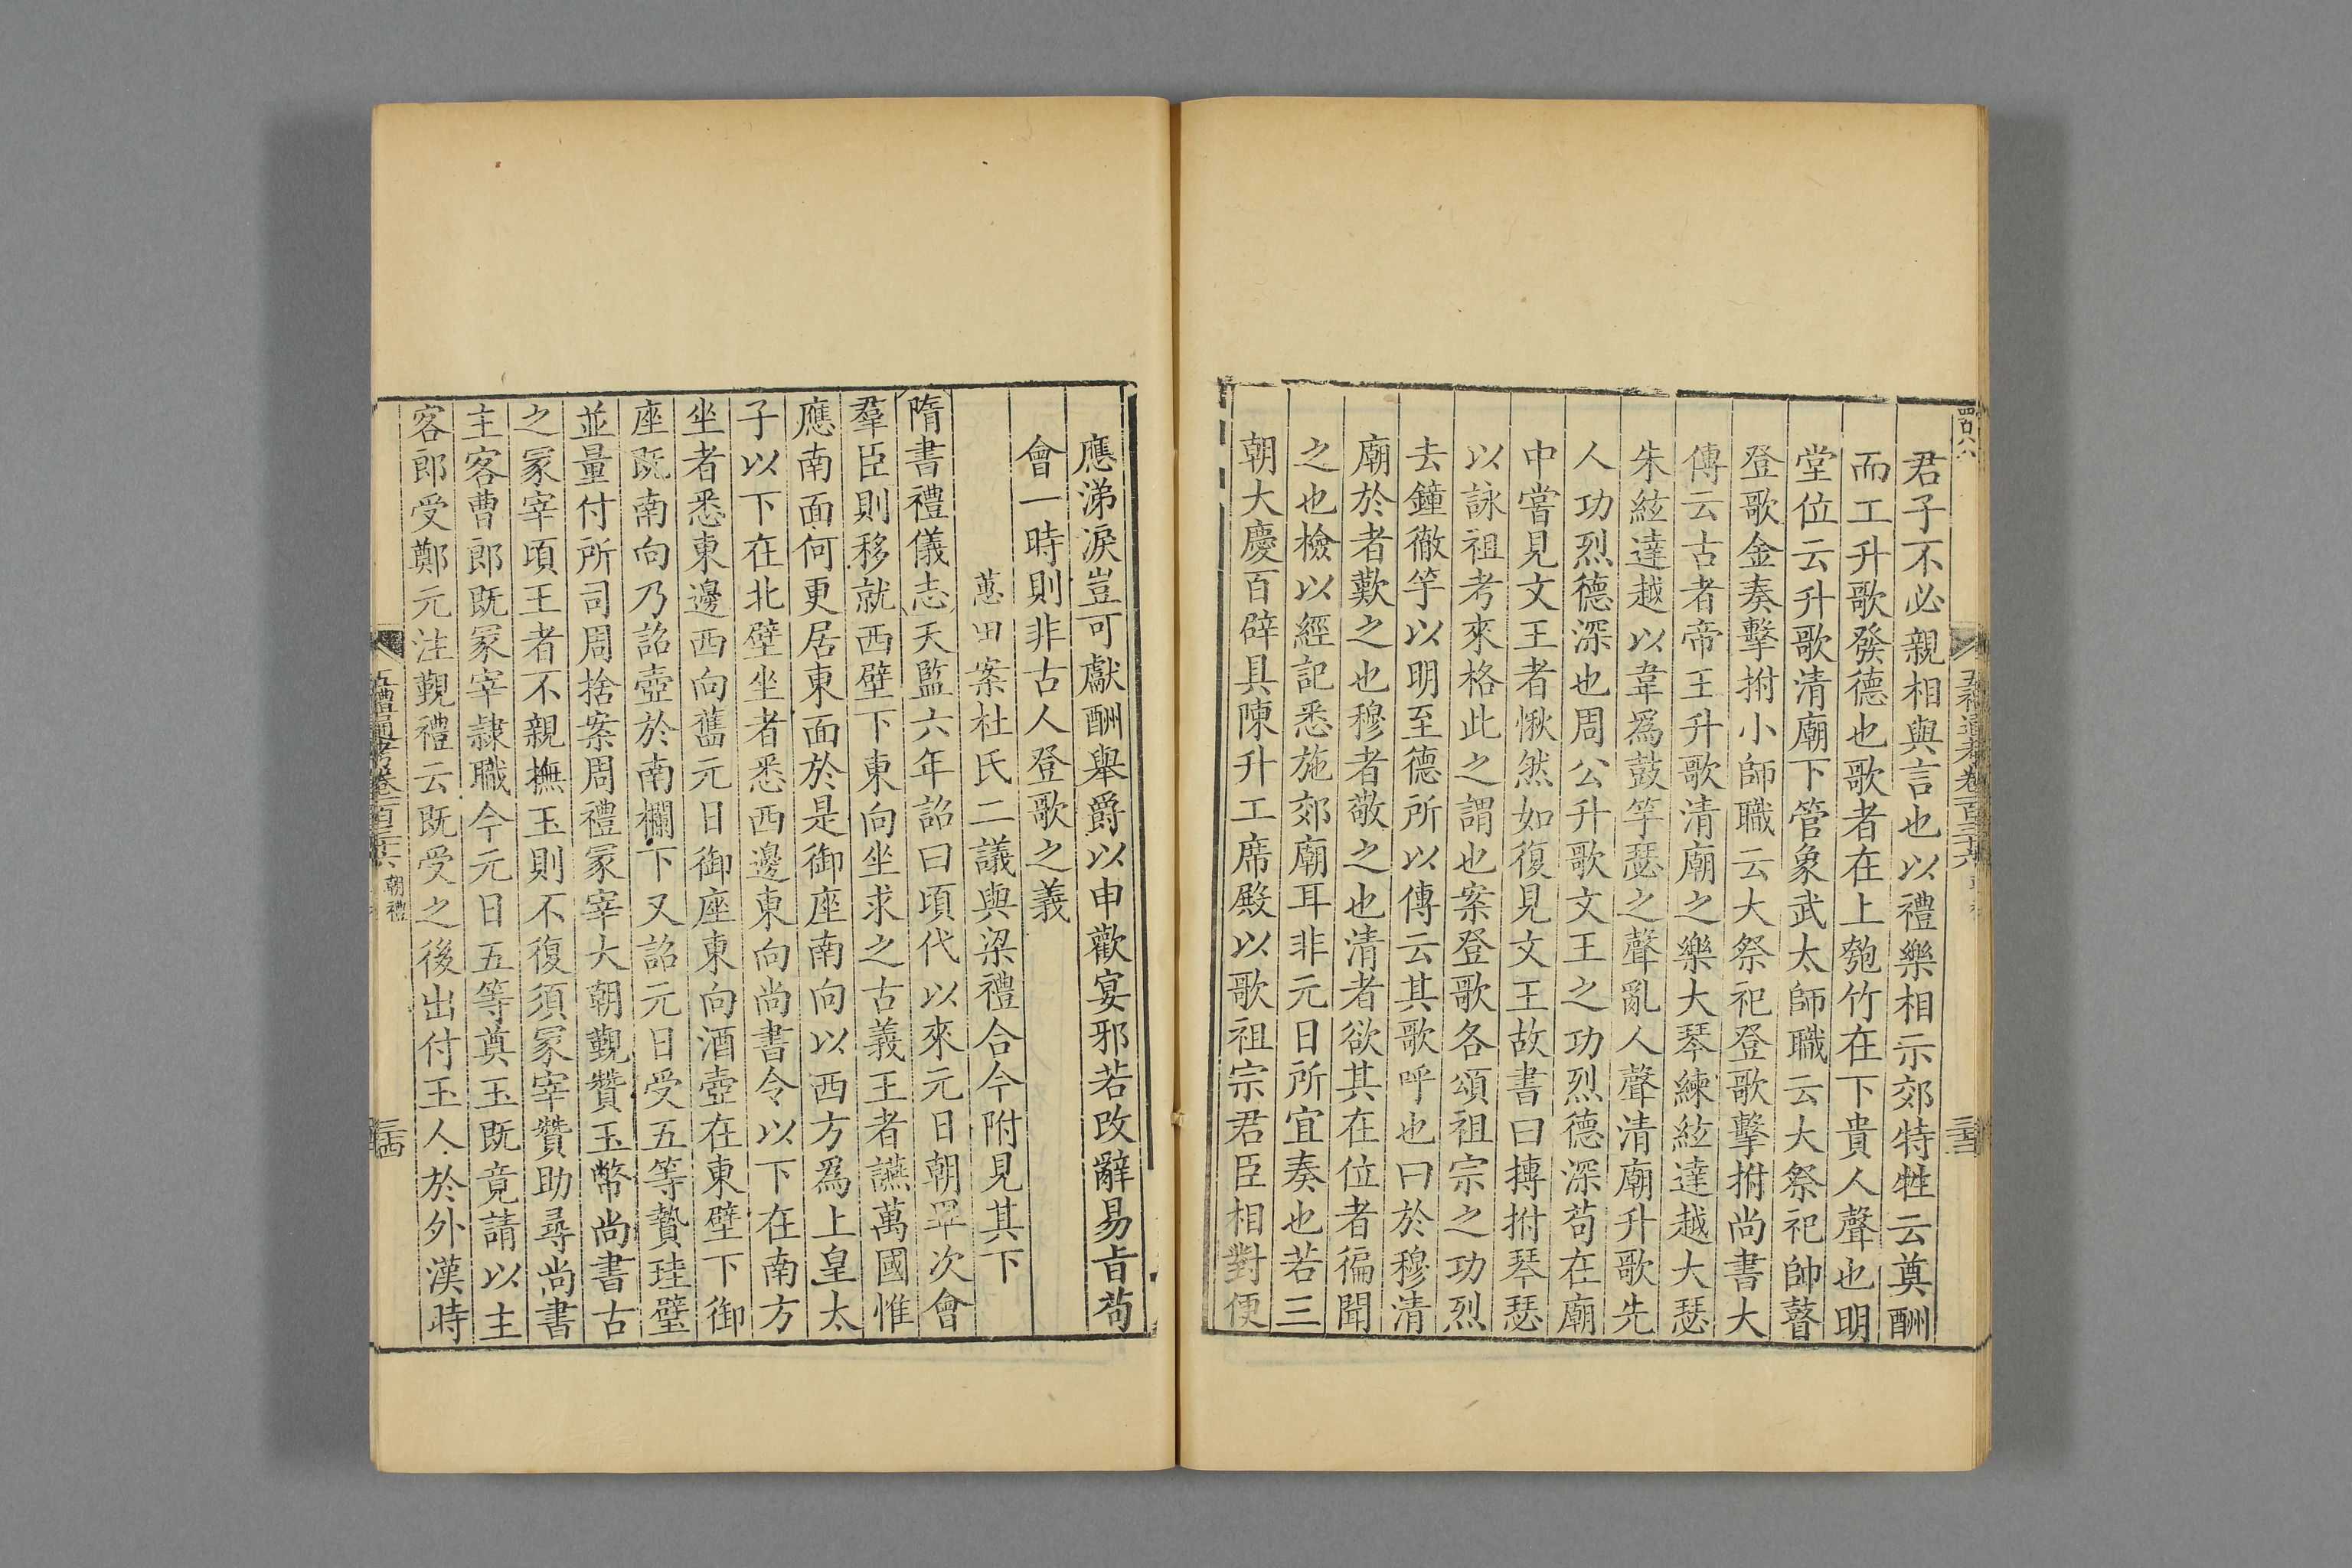 君子不必親相與言也以禮樂相示郊特牲云奠酬
而工升歌發德也歌者在上匏竹在下貴人聲也明
堂位云升歌清廟下管象武太師職云大祭祀帥瞽
登歌金奏擊拊小師職云大祭祀登歌擊拊尚書大
傳云古者帝王升歌清廟之樂大琴練絃達越大瑟
朱絃達越以韋爲鼓竽瑟之聲亂人聲清廟升歌先
人功烈德深也周公升歌文王之功烈德深苟在廟
中嘗見文王者愀然如復見文王故書曰搏拊琴瑟
以詠祖考來格此之謂也案登歌各頌祖宗之功烈
去鐘徹竽以明至德所以傳云其歌呼也曰於穆清
廟於者歎之也穆者敬之也清者欲其在位者徧聞
之也檢以經記悉施郊廟耳非元日所宜奏也若三
朝大慶百辟具陳升工席殿以歌祖宗君臣相對便
應涕淚豈可獻酬舉爵以申歡宴邪若改辭易㫖苟
會一時則非古人登歌之義
蕙田案杜氏二議與梁禮合今附見其下
隋書禮儀志天監六年詔曰頃代以來元日朝畢次會
羣臣則移就西壁下東向坐求之古義王者讌萬國惟
應南面何更居東面於是御座南向以西方爲上皇太
子以下在北壁坐者悉西邊東向尚書令以下在南方
坐者悉東邊西向舊元日御座東向酒壺在東壁下御
座既南向乃詔壺於南欄下又詔元日受五等贄珪璧
並量付所司周捨案周禮冢宰大朝覲贊玉幣尚書古
之冢宰頃王者不親撫玉則不復須冢宰贊助尋尚書
主客曹郎既冢宰隷職今元日五等奠玉既竟請以主
客郎受鄭元注覲禮云既受之後出付玉人於外漢時
五禮通考卷一百三十六 朝禮
二十四